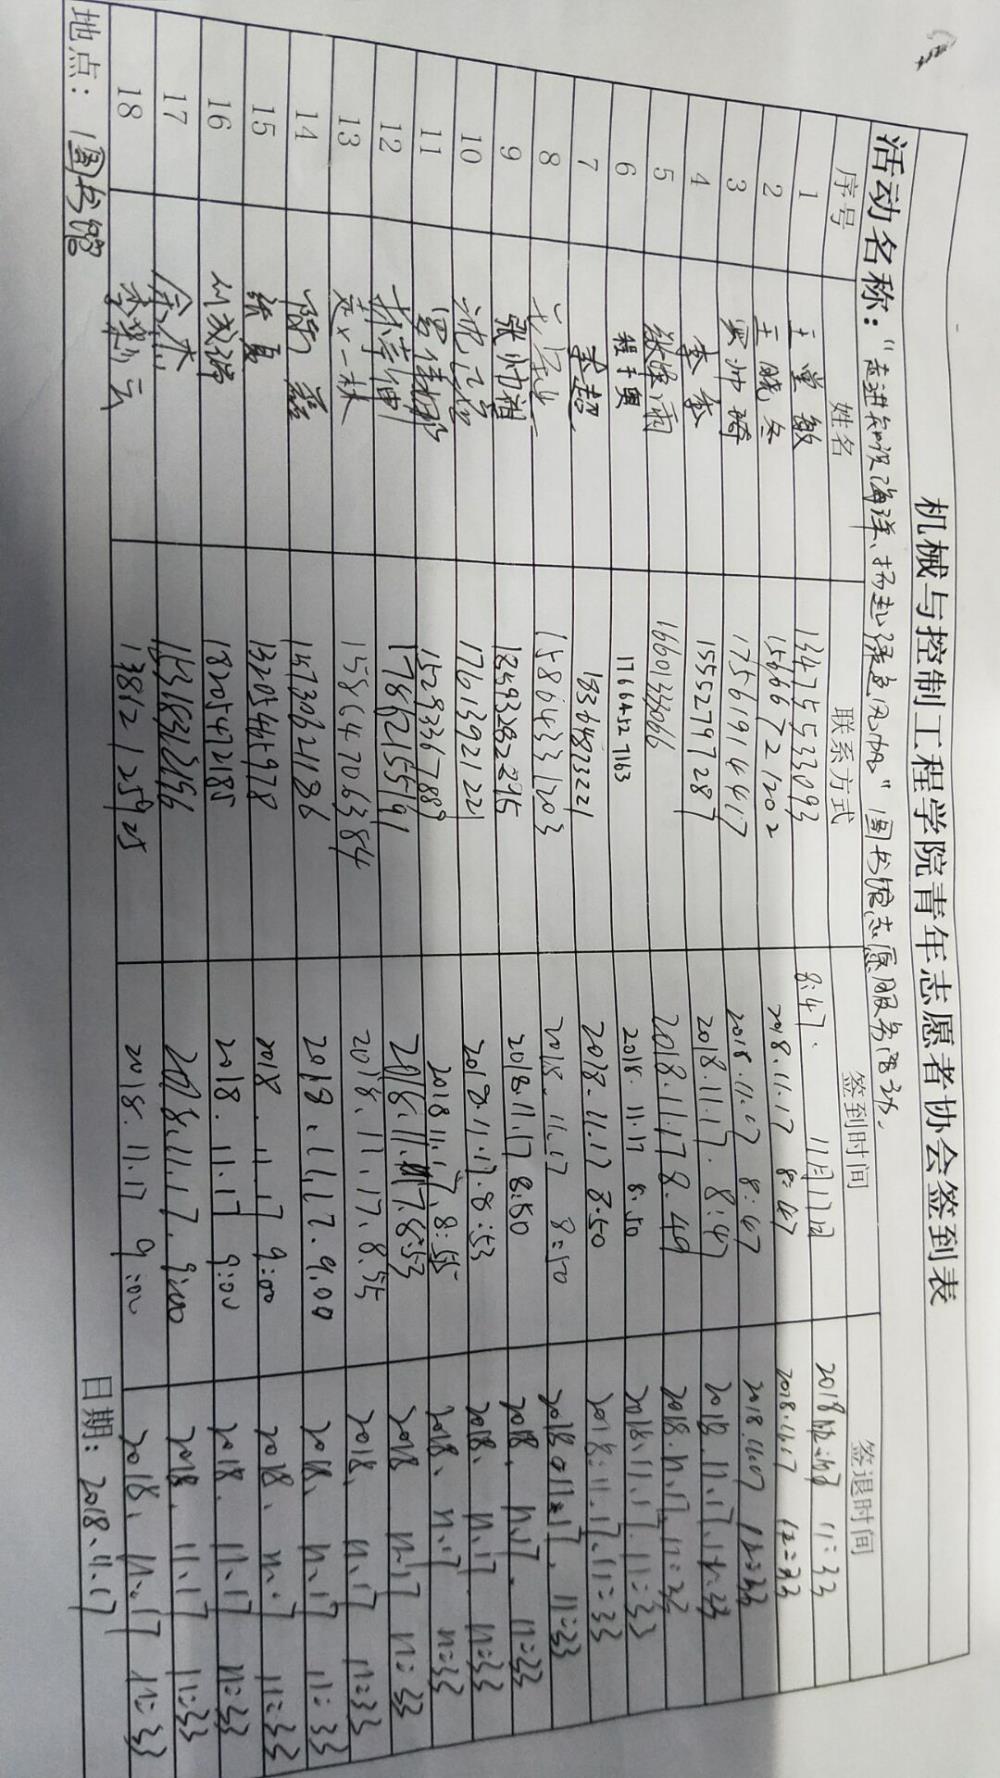 机械与控制工程学院青年志愿者协会签到表
活动名称："走进知识海洋、扬起绿色风帆"图书馆志愿服务活动.
序号 姓名 联系方式 签到时间 签退时间
1 王堂敏 13475533093 8:47. 11月17日 2018 11:33
2 王晓冬 15666721202 2018.11.17 8:47 2018.11.17 12:33
3 贾冲琦 17561914417 2018.11.17 8:47 2018.11.17 12:33
4 李鑫 15552797287 2018.11.17. 8:47 2018.11.17.12:33
5 16601333066 2018.11.17 8.49 2018.11.17.11:33
6 程子奥 17664527163 2018. 11.17 8.50 2018.11.17. 11:33
7 姜超 18364873221 2018.11.17 8.50 2018.11.17.11:33
8 15864331203 2018.11.17 8:50 2018.11.17. 11:33
9 张帅祖 18493282295 2018.11.17 8:50 2018. 11.17. 11:33
10 17613921221 2018.11.17.8:53 2018. 11.17. 11:33
11 15283367889 2018 11.17.8:55 2018. 11.17 11:33
12 17862155791 2018.11.17.8:53 2018 11.17 11:33
13 15564706384 2018.11.17.8.55 2018. 11.17 11:33
14 15730621186 2018.11.17.9.00 2018. 11.17 11:33
15 张夏 13205461978 2018. 11.17 9:00 2018. 11.17 11:33
16 刘成瑞 18205412185 2018. 11.17 9:00 2018. 11.17 11:33
17 余杰 2018.11.17. 9:00 2018. 11.17 11:33
18 2018.11.17 9:00 2018. 11.17 11:33
地点：图书馆 日期：2018.11.17